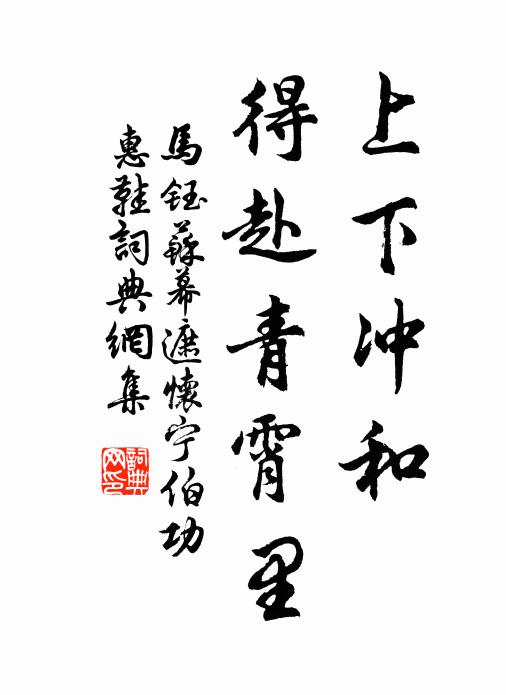 上下冲和
得赴青霄里
馬鈺蘇幕遮懷宁伯功
惠鞋詞典網集
詞典
网印